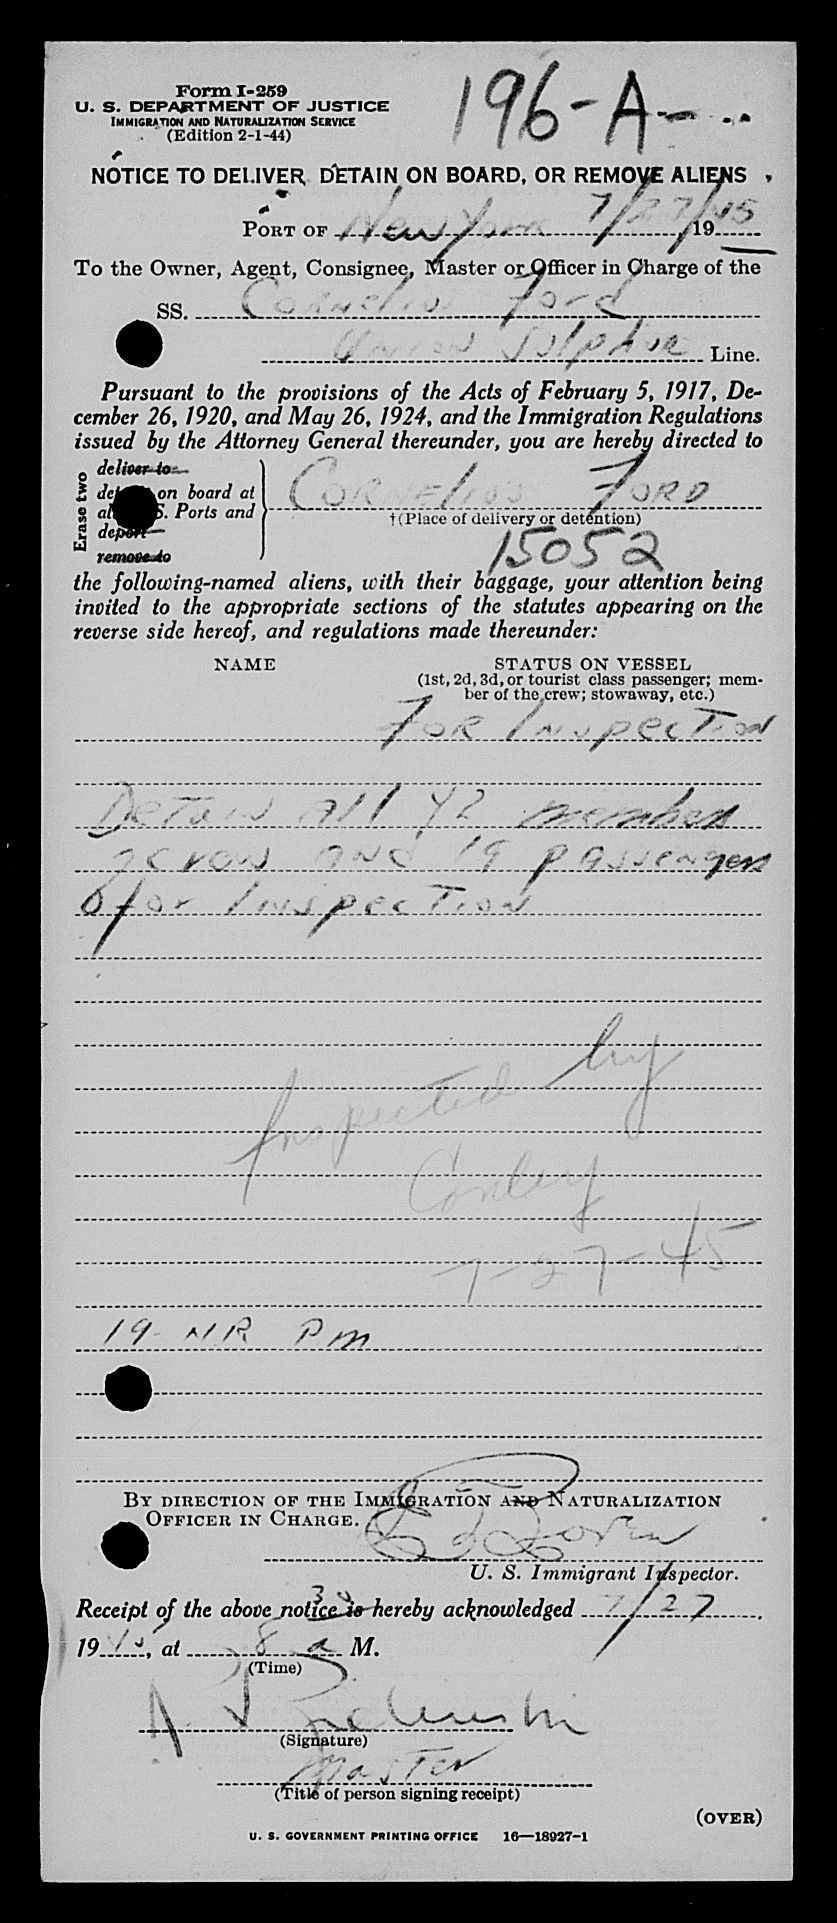 Form I-259
U. S. DEPARTMENT OF JUSTICE
IMMIGRATION AND NATURALIZATION SERVICE
(Edition 2-1-44)
196-A-
NOTICE TO DELIVER, DETAIN ON BOARD, OR REMOVE ALIENS
PORT OF New York 7/27/1945
To the Owner, Agent, Consignee, Master or Officer in Charge of the
SS. Cornelius Ford
Union Sulphur Line.
Pursuant to the provisions of the Acts of February 5, 1917, De-
cember 26, 1920, and May 26, 1924, and the Immigration Regulations
issued by the Attorney General thereunder, you are hereby directed to
Erase two
deliver to
on board at
S. Ports and
deport
remove to
CORNELIUS FORD
†(Place of delivery or detention)
15052
the following-named aliens, with their baggage, your attention being
invited to the appropriate sections of the statutes appearing on the
reverse side hereof, and regulations made thereunder:
NAME STATUS ON VESSEL
(1st, 2d, 3d, or tourist class passenger; mem-
ber of the crew; stowaway, etc.)
For Inspection
Detain all 42 members
crow and 19 passengers
for Inspection
Inspected by
Conley
7-27-45
19 NR Pm
BY DIRECTION OF THE IMMIGRATION AND NATURALIZATION
OFFICER IN CHARGE.
U. S. Immigrant Inspector.
Receipt of the above notice is hereby acknowledged 7/27,
1945, at 8 30 a M.
(Time)
(Signature)
Master
(Title of person signing receipt)
(OVER)
U. S. GOVERNMENT PRINTING OFFICE 16—18927-1